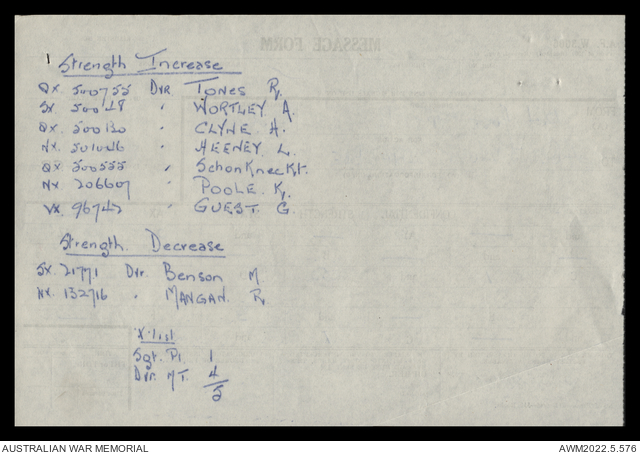 MESSAGE FORM
1
Strength Increase
QX. 500755 Dvr TONES R.
SX. 50048 " WORTLEY A.
QX. 500130 " CLYNE H.
NX. 501046 " HEENEY L.
QX. 500555 " SchonKnecKt.
NX 206607 " POOLE K.
VX. 96742 " GUEST G.
Strength. Decrease
SX. 21771 Dvr. Benson M.
NX. 132716 " MANGAN. R.
X list
Sgt. Pl. 1
Dvr. MT. 4
5
AUSTRALIAN WAR MEMORIAL
AWM2022.5.576